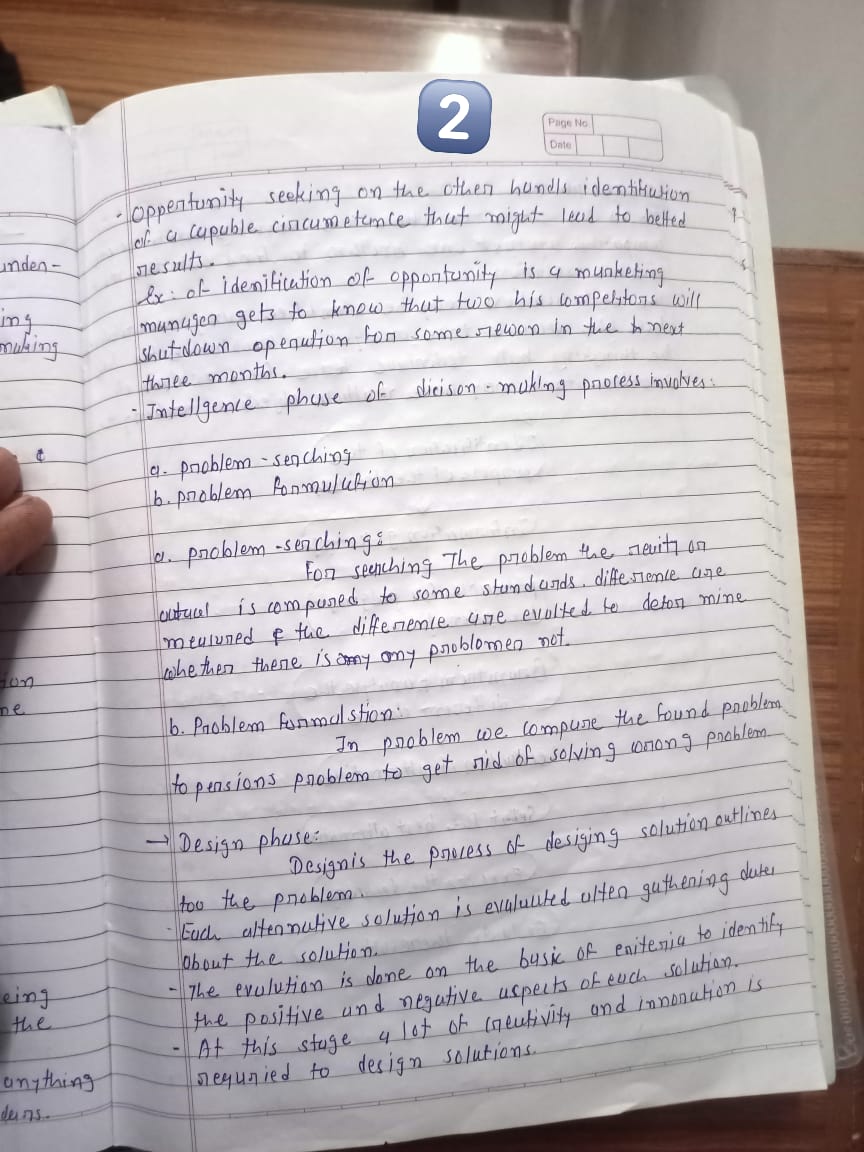 2
Page No
Date
- Oppertunity seeking on the other hundls identitution
of a capuble circumetance that might lead to betted
results.
Ex: of idenification of oppontunity is a munketing
manuger gets to know that two his compeltors will
shutdown openution for some rewon in the next
three months.
- Intellgence phase of dicison - making process involves:
a. problem - serching
b. problem formulution
a. problem - serching:
For seenching The problem the reuity or
autual is compuned to some stundunds. difference are
meusured & the difference are evulted to deton mine
whether there is any problomen not.
b. Problem formulstion:
In problem we compure the found problem
to pensions problem to get rid of solving wrong problem
→ Design phase:
Designis the process of desiging solution outlines
too the problem.
- Each alternutive solution is evaluuted often guthering dates
about the solution.
- The evulution is done on the busic of eniteria to identify
the positive and negative aspects of each solution.
- At this stuge a lot of creutivity and innonution is
requried to design solutions.
unden -
ing
muking
¢
ion
ne
eing
the
anything